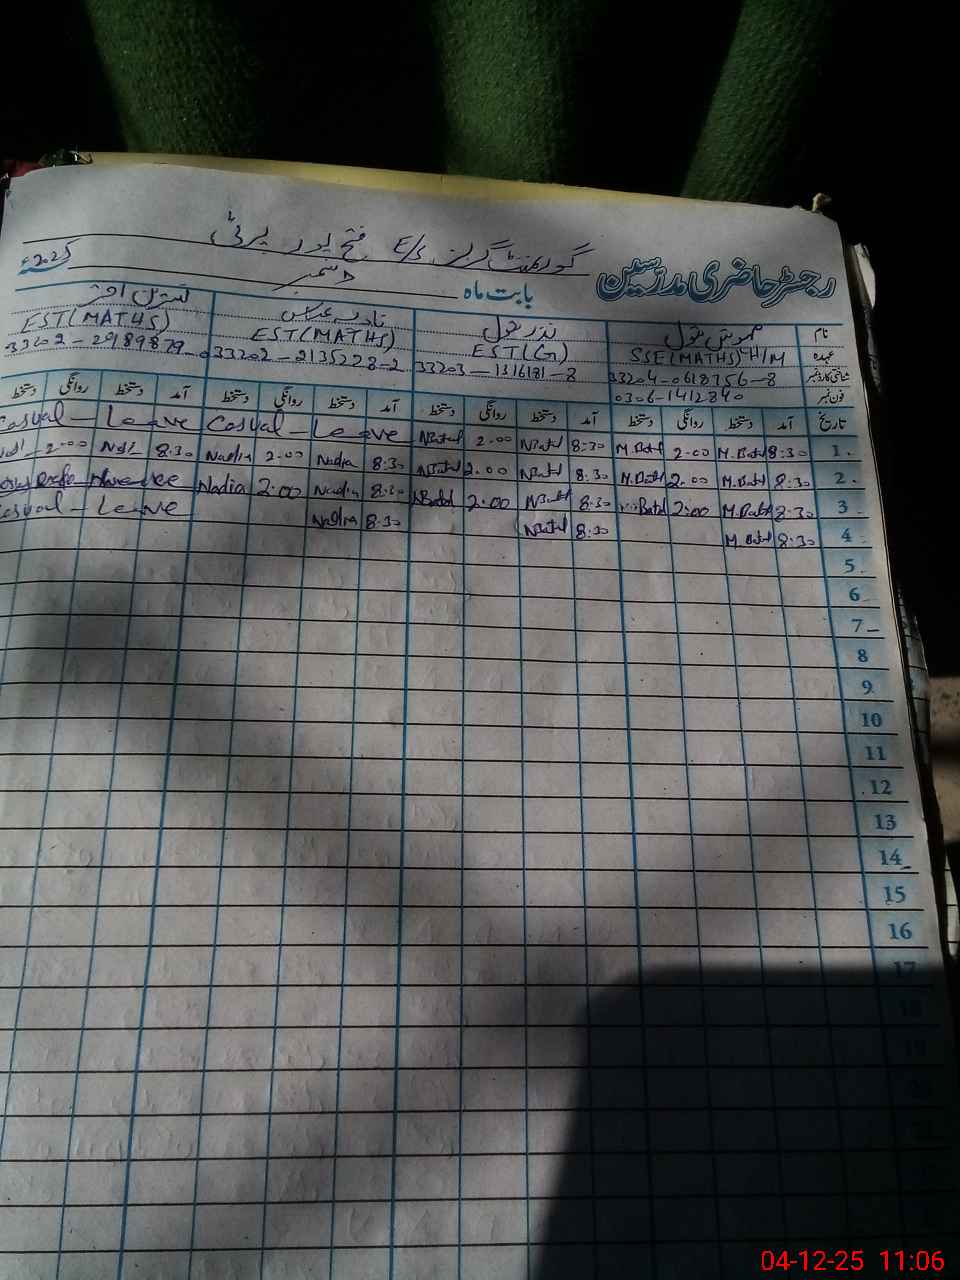 گورنمنٹ گرلز E/S فتح پور
رجسٹر حاضری مدرسین
بابت ماہ دسمبر 2025ء
نام
عہدہ SSE(MATHS) H/M EST(G) EST(MATHS) EST(MATHS)
شناختی کارڈ نمبر 33203-1316181-8 33202-2135228-2
فون نمبر 0306-1412840
تاریخ آمد دستخط روانگی دستخط آمد دستخط روانگی دستخط آمد دستخط روانگی دستخط آمد دستخط روانگی دستخط
1 8:30 M.Batul 2.00 M.Batul 8:30 N Batul 2.00 N Batul Casual - Leave Casual - Leave
2 8:30 M.Batul 2.00 M.Batul 8:30 N Batul 2.00 N Batul 8:30 Nadia 2.00 Nadia 8:30 2.00
3 8:30 M.Batul 2:00 Batul 8:30 N Batul 2:00 N Batul 8:30 Nadia 2:00 Nadia
4 8:30 M.Batul 8:30 N Batul 8:30 Nadia Casual - Leave
5
6
7
8
9
10
11
12
13
14
15
16
17
18
19
04-12-25 11:06